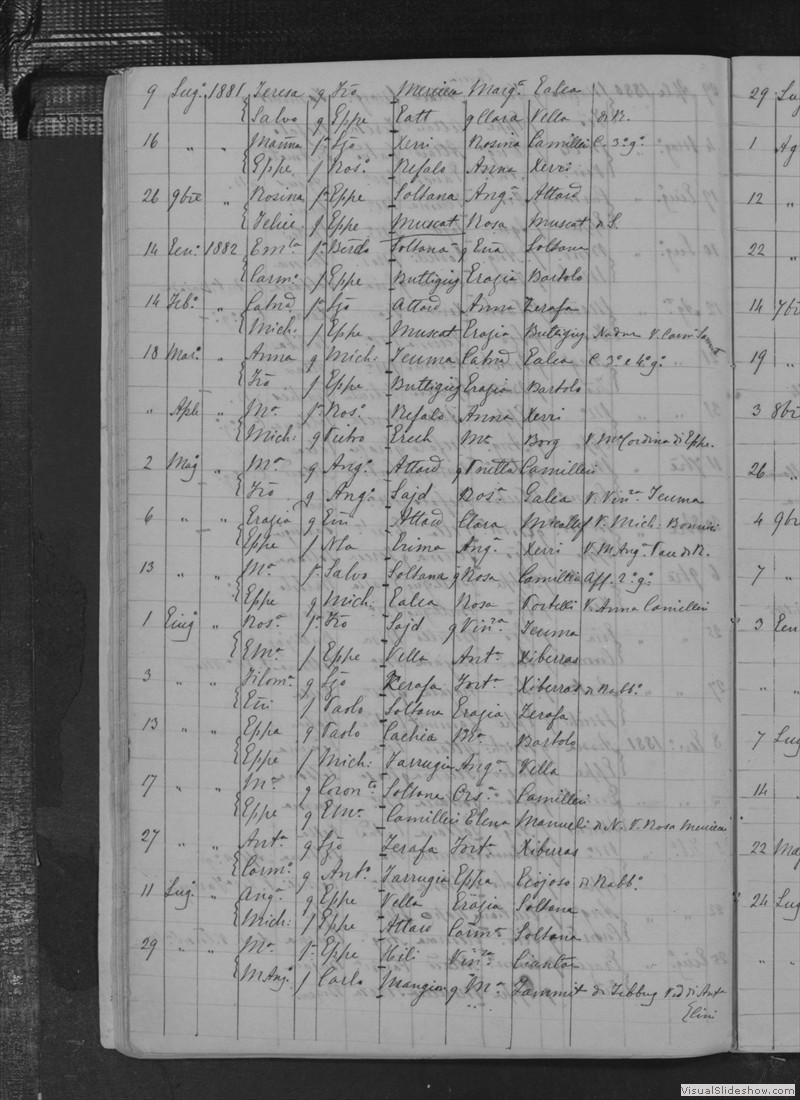 9 Lug.o 1881 Teresa g Fro Mercieca Marg.a Galea
Salvo g Eppe Catt g Clara Vella di R.
16 „ „ f.a Sjo Xerri Rosina Camilleri C. 3.o g.o
Eppe f Ros.o Refalo Anna Xerri
26 9bre „ Rosina f.a Eppe Soltana Ang.a Attard
Felice f Eppe Muscat Rosa Muscat di S.
14 Gen.o 1882 Em.la f.a Berdo Soltana g Eva Soltana
Carm.o f Eppe Buttigieg Grazia Bartolo
14 Feb.o „ Catnd f.a Sjo Attard Anna Zerafa
Mich: f Eppe Muscat Grazia Buttigieg Nadur V.
18 Mar.o „ Anna g Mich: Teuma Catnd Galea C. 3.o e 4.o g.o
Fro f Eppe Buttigieg Grazia Bartolo
„ Aple „ M.a f.a Ros.o Refalo Anna Xerri
Mich: g Pietro Grech M.a Borg V. M.a Cordina di Eppe.
2 Mag „ M.a g Ang.o Attard g Vnetta Camilleri
Fro g Ang.o Sajd Ros.a Galea V. Vin.za Teuma
6 „ „ Grazia g Gio Attard Clara Micallef V. Mich: Bonnici
Eppe f Nla Crima Ang.a Xerri V. M. Ang.a
13 „ „ M.a f.a Salvo Soltana g Rosa Camilleri Aff. 2.o g.o
Eppe g Mich: Galea Rosa Portelli V. Anna Camilleri
1 Giug „ Ros.a f.a Fro Sajd g Vin.za Teuma
Em.o f Eppe Vella Ant.a Xiberras
3 „ „ Filom.a g Sjo Zerafa Fort.a Xiberras di Rabb.o
Gio f Paolo Soltana Grazia Zerafa
13 „ „ Eppa g Paolo Cachia M.a Bartolo
Eppe f Mich: Farrugia Ang.a Vella
17 „ „ M.a g Coron.to Soltana Ors.a Camilleri
Eppe g Em.o Camilleri Elena Manueli di N. V. Rosa Mercieca
27 „ „ Ant.a g Sjo Zerafa Fort.a Xiberras
Carm.o g Ant.o Farrugia Eppa di Rabb.o
11 Lug. „ Ang.a g Eppe Vella Grazia Soltana
Mich: f Eppe Attard Carm.a Soltana
29 „ „ M.a f.a Eppe Hili Vin.za Cianta
M Ang.o f Carlo Mangion g M.a Zammit di Zebbug Ved di Ant.a
29 Lug
1 Ag
12 „
22 „
14 7bre
19 „
3 8bre
26 „
4 9bre
7 „
3 Gen
„ „
7 Lug
14 „
22 Mag
24 Lug
„ „
VisualSlideshow.com